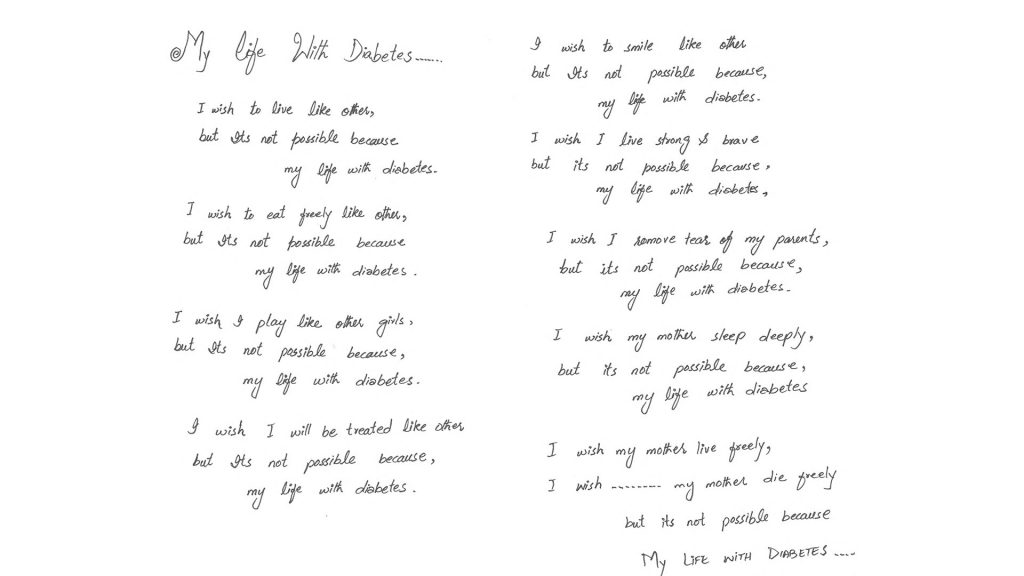 My life With Diabetes.......
I wish to live like other,
but Its not possible because
my life with diabetes.
I wish to eat freely like other,
but Its not possible because
my life with diabetes.
I wish I play like other girls,
but Its not possible because,
my life with diabetes.
I wish I will be treated like other
but Its not possible because,
my life with diabetes.
I wish to smile like other
but Its not possible because,
my life with diabetes.
I wish I live strong & brave
but its not possible because,
my life with diabetes,
I wish I remove tear of my parents,
but its not possible because,
my life with diabetes.
I wish my mother sleep deeply,
but its not possible because,
my life with diabetes
I wish my mother live freely,
I wish --------- my mother die freely
but its not possible because
My LIFE WITH DIABETES ....